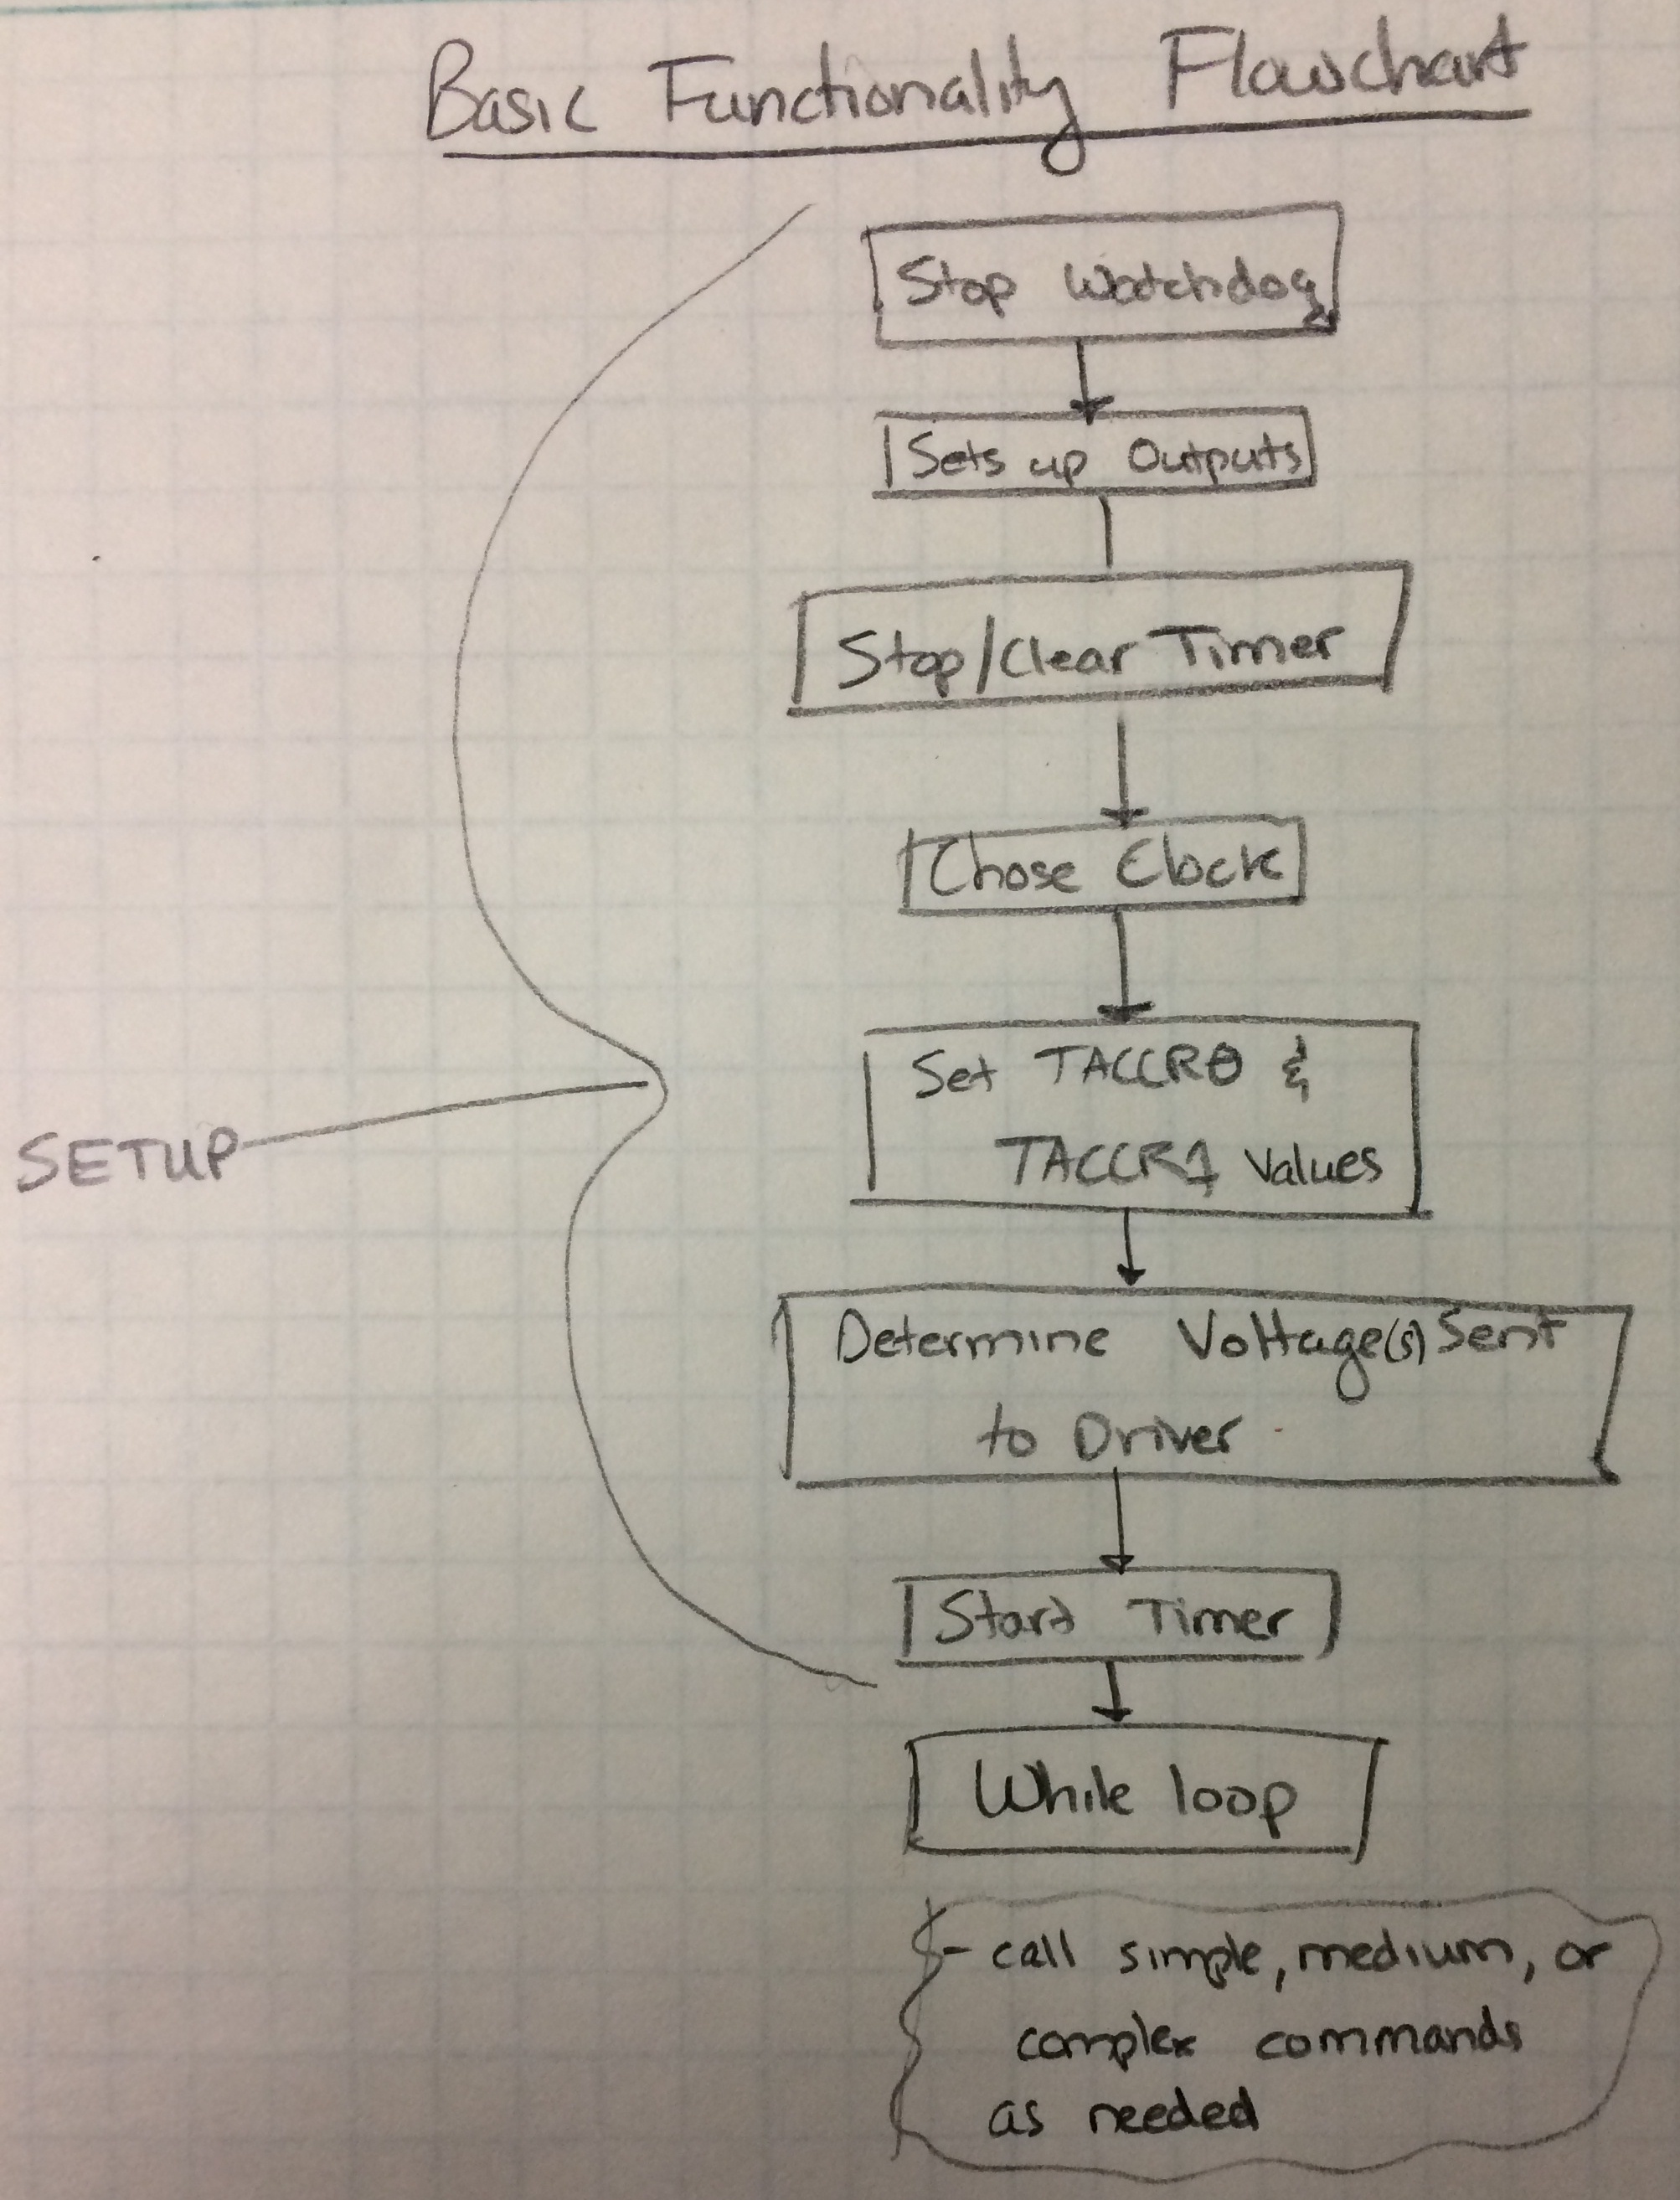 Basic Functionality Flowchart
Stop Watchdog
Sets up Outputs
Stop/Clear Timer
Chose Clock
Set TACCR0 &
TACCR1 values
SETUP
Determine Voltage(s) Sent
to Driver
Start Timer
While loop
- call simple, medium, or
complex commands
as needed